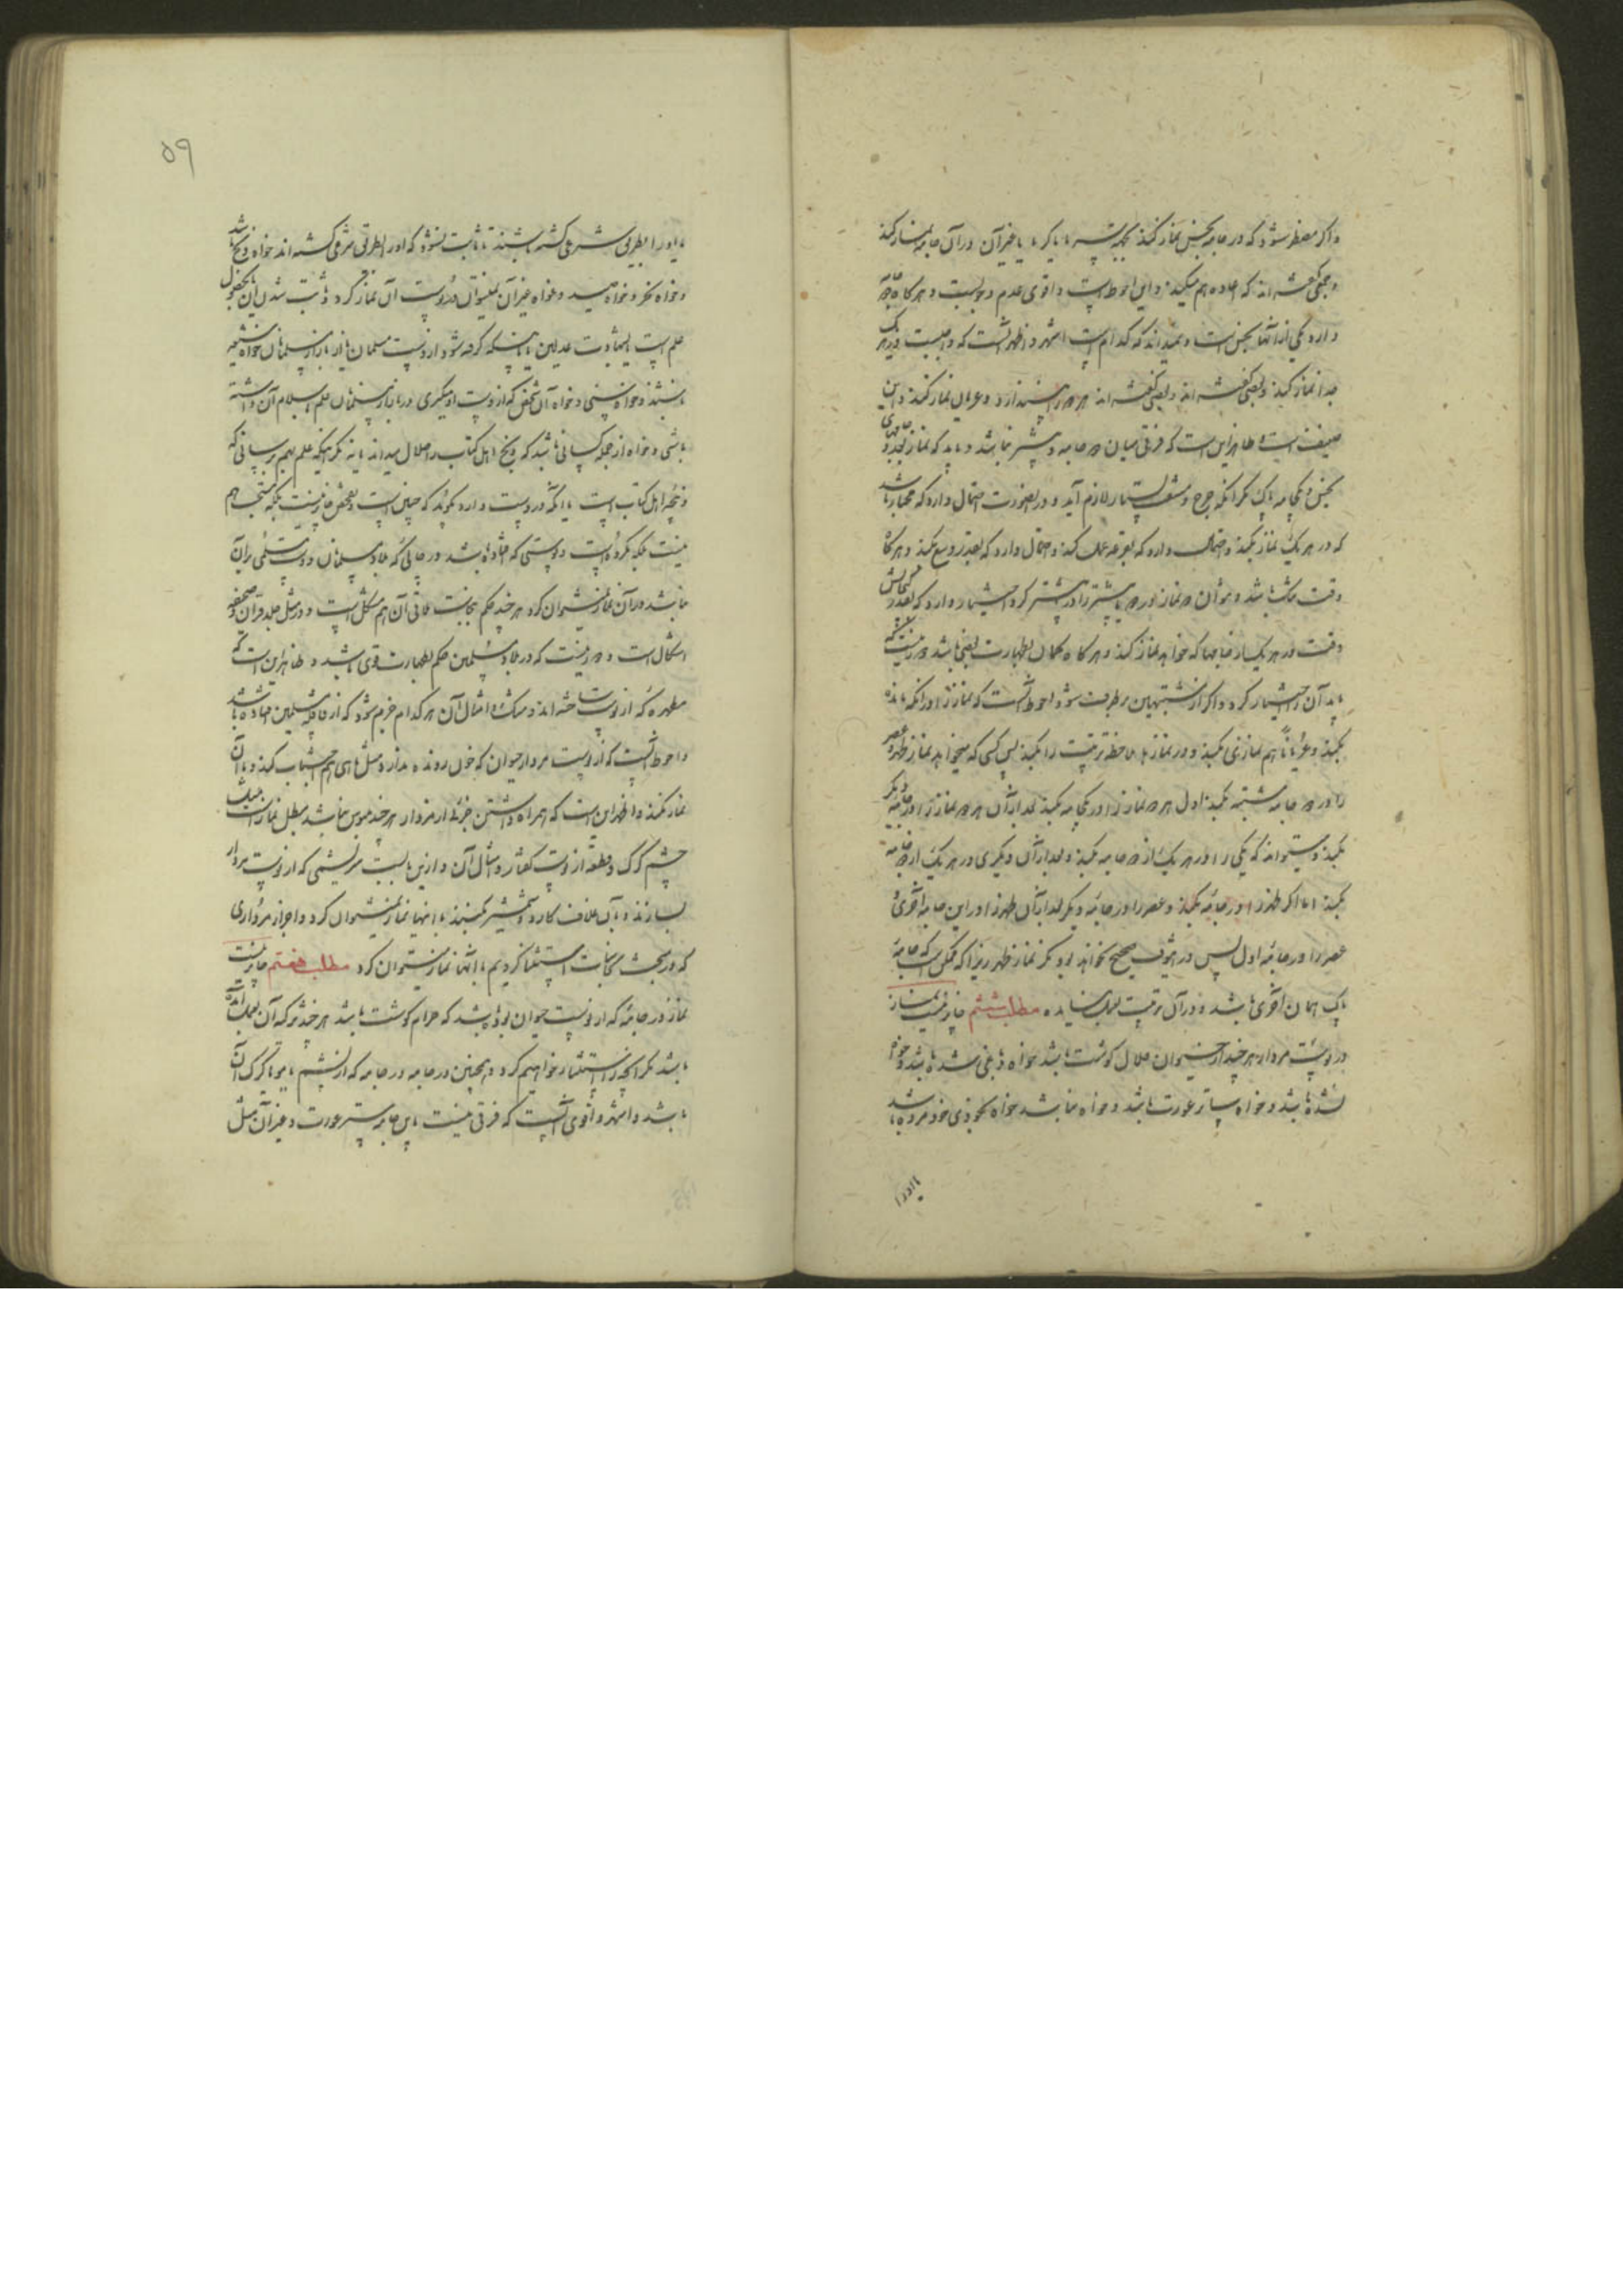 واگر مضطر شود که در جامه نجس نماز کند بجهة سرما یا گرما یا غیر آن در آن جامه نماز کند
و جمعی گفته اند که اعاده هم میکند و این احوط است و اقوی عدم وجوبست و هر گاه دو جامه
دارد یکی از آنها نجس است و نمیداند که کدام است اشهر و اظهر آنست که واجبست در هر یک
جدا نماز کند و بعضی گفته اند هر دو را بیندازد و عریان نماز کند و این
ضعیف است و ظاهر این است که فرقی میان دو جامه و بیشتر نباشد و باید که نماز بعدد جامهای
نجس و یکجامه پاک مگر آنکه حرج و مشقت بسیار لازم آید و در اینصورت احتمال دارد که مختار باشد
که در هر یک نماز بکند و احتمال دارد که بقرعه عمل کند و احتمال دارد که بقدر وسع بکند و هر گاه
وقت تنگ باشد و نتوان دو نماز در دو یا بیشتر را در بیشتر کرد اختیار دارد که بقدر گنجایش
وقت در هر یک از جامها که خواهد نماز کند و هر گاه گمان بطهارت بعضی باشد دور نیست که
باید آن را اختیار کرد و اگر از مشتبهین برطرف شود احوط آنست که نماز را در آنکه مانده
بکند و عریانا هم نمازی بکند و در نماز ملاحظه ترتیب را بکند پس کسی که میخواهد نماز ظهر و عصر
را در دو جامه مشتبه بکند اول هر دو نماز را در یکجامه بکند بعد از آن هر دو نماز را در جامه دیگر
بکند و میتواند که یکی را در هر یک از دو جامه بکند و بعد از آن دیگری در هر یک از دو جامه
بکند اما اگر ظهر را در جامه بکند و عصر را در جامه دیگر بعد از آن ظهر را در این جامه آخری و
عصر را در جامه اول پس در هیچوقت صحیح نخواهد بود مگر نماز ظهر زیرا که ممکن است که جامه
پاک همان آخری باشد و در آن ترتیب بعمل نیامده مطلب ششم جایز نیست نماز
در پوست مردار هر چند از حیوان حلال گوشت باشد خواه دباغی شده باشد و خواه
نشده باشد و خواه ساتر عورت باشد و خواه نباشد خواه بخودی خود مرده باشد
یا او را
۵۹
یا او را بطریق شرعی کشته باشند تا ثابت نشود که او را بطریق شرعی کشته اند خواه ذبح باشد
و خواه نحر و خواه صید و خواه غیر آن نمیتوان در پوست آن نماز کرد و ثابت شدن آن یا بحصول
علم است یا بشهادت عدلین یا باینکه گرفته شود از دست مسلمان یا از بازار مسلمانان خواه شیعه
باشند و خواه سنی و خواه آن شخص که از دست او میگیری در بازار مسلمانان علم باسلام آن داشته
باشی و خواه از جمله کسانی باشد که ذبح اهل کتاب را حلال میدانند یا نه مگر اینکه علم بهم برسانی که
ذبیحه اهل کتاب است یا آنکه در دست دارد بگوید که چنین است و تفحص جایز نیست بلکه مستحب هم
نیست بلکه مکروه است و پوستی که افتاده باشد در جائی که بلاد مسلمانان و دست مسلمی بر آن
نباشد در آن نماز نمیتوان کرد هر چند حکم بنجاست ملاقی آن هم مشکل است و در مثل جلد قرآن و صحیفه
اشکال است و دور نیست که در بلاد مسلمین حکم بطهارت قوی باشد و ظاهر این است که
مطهره که از پوست ساخته اند و مشک و امثال آن هر کدام جزم شود که از قافله مسلمین افتاده باشد
و احوط آنست که از پوست مردار حیوان که خون رونده ندارد مثل ماهی هم اجتناب کند و با آن
نماز نکند و اظهر این است که همراه داشتن جزئی از مردار هر چند ملبوس نباشد مبطل نماز است مثل
چشم گرگ و قطعه از پوست کفتار و امثال آن و از این بابست سریشمی که از پوست مردار
بسازند و بآن غلاف کارد و شمشیر بچسبند با اینها نماز نمیتوان کرد و اجزاء مرداری
که در مبحث نجاسات استثنا کردیم با آنها نماز میتوان کرد مطلب هفتم جایز نیست
نماز در جامه که از پوست حیوان بوده باشد که حرام گوشت باشد هر چند تذکیه آن بعمل آمده
باشد مگر آنچه را استثناء خواهیم کرد و همچنین در جامه که از پشم یا مو یا کرک آن
باشد و اشهر و اقوی آنست که فرقی نیست بین جامه ستر عورت و غیر آن مثل